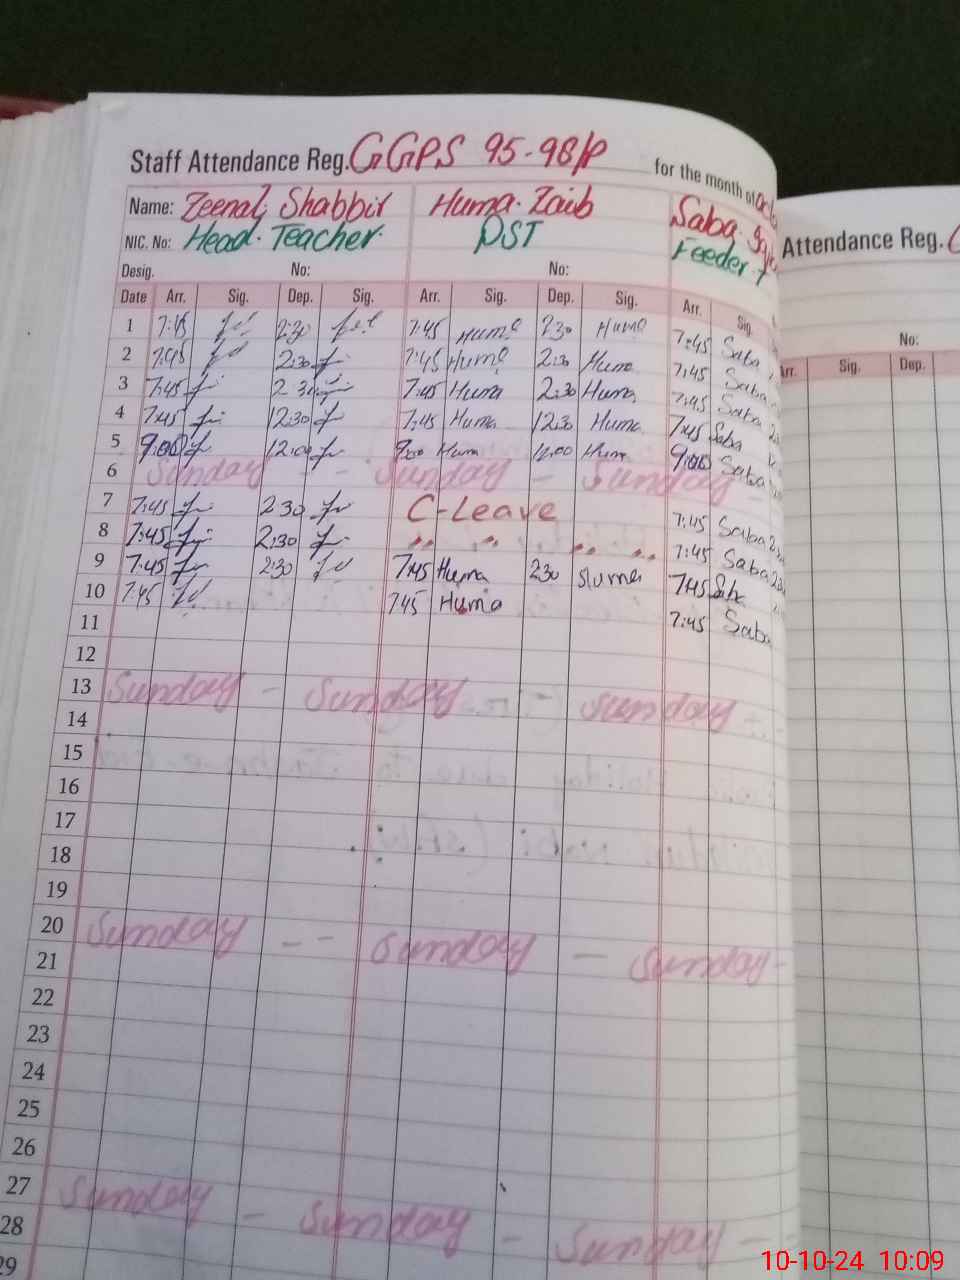 Staff Attendance Reg. GGPS 95-98/P for the month of
Name: Zeenat Shabbir Huma Zaib Saba
NIC. No: Head Teacher PST Feeder
Desig. No: No:
Date Arr. Sig. Dep. Sig. Arr. Sig. Dep. Sig. Arr. Sig.
1 2:30 7:45 Huma 2:30 Huma 7:45 Saba
2 7:45 2:30 7:45 Huma 2:30 Huma 7:45 Saba
3 7:45 2 30 7:45 Huma 2:30 Huma 7:45 Saba
4 7:45 2:30 7:45 Huma 2:30 Huma 7:45 Saba
5 9:00 12:00 9:00 Hum 12:00 Hum 9:00 Saba
6 Sunday - Sunday - Sunday -
7 7:45 2 30 C-Leave 7:45 Saba
8 7:45 2:30 " " " " 7:45 Saba
9 7:45 2:30 7:45 Huma 2 30 Huma 7:45 Saba
10 7:45 7 45 Huma 7:45 Saba
11
12
13 Sunday - Sunday Sunday
14
15
16
17
18
19
20 Sunday -- Sunday - Sunday -
21
22
23
24
25
26
27 Sunday - Sunday - Sunday -
28
29
Attendance Reg.
No:
Arr. Sig. Dep.
10-10-24 10:09